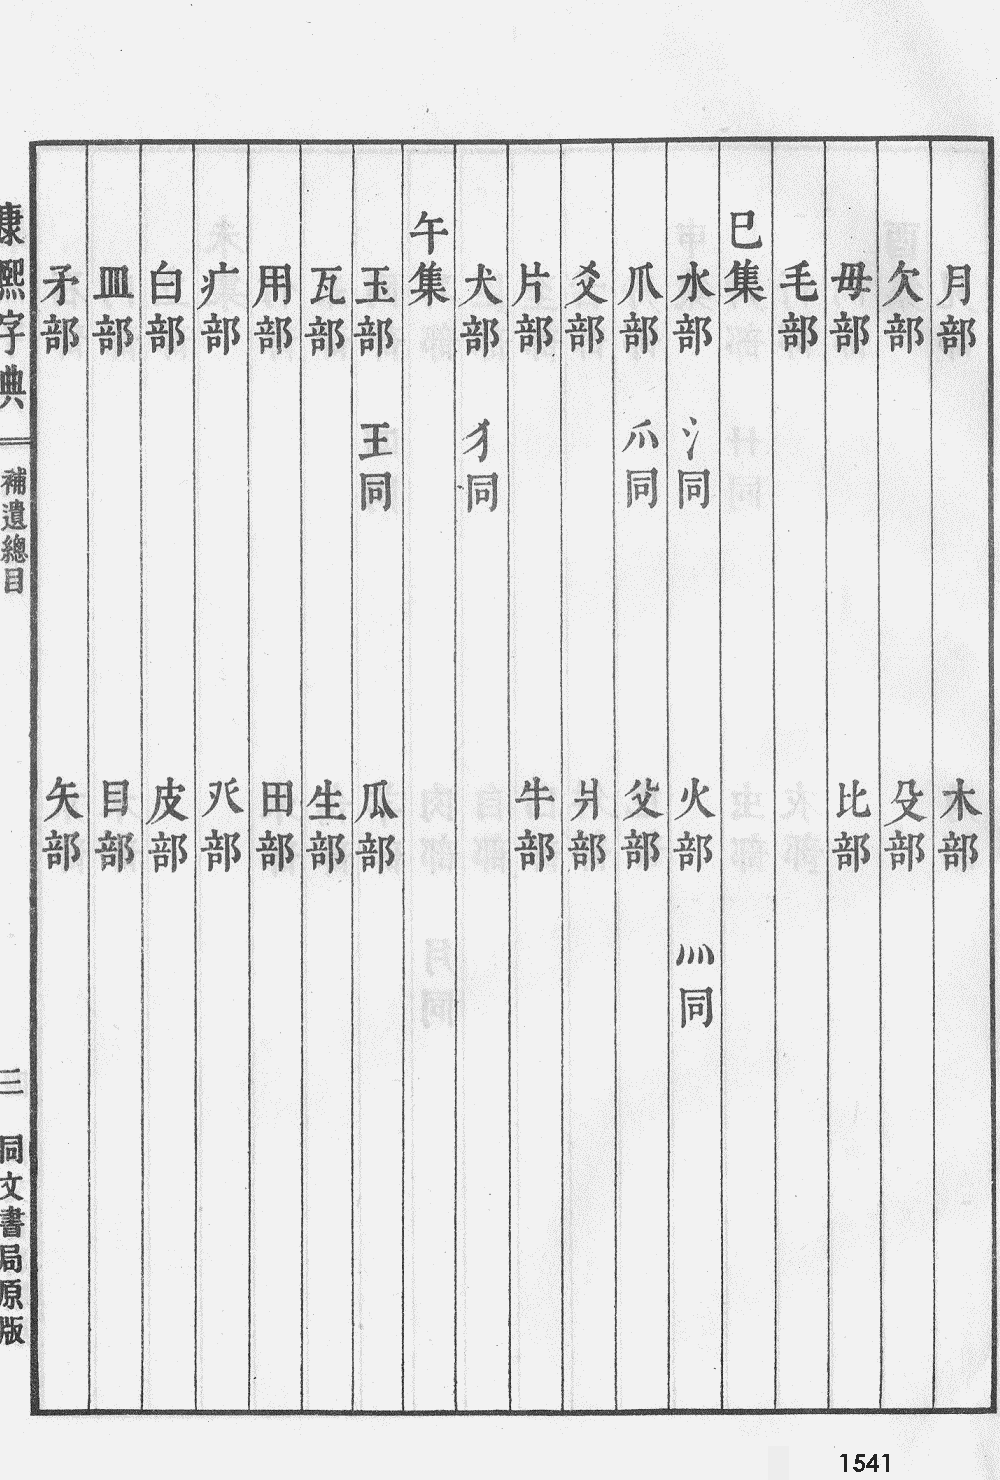 月部 木部
欠部 殳部
毋部 比部
毛部
巳集
水部 氵同 火部 灬同
爪部 爫同 父部
爻部 爿部
片部 牛部
犬部 犭同
午集
玉部 王同 瓜部
瓦部 生部
用部 田部
疒部 癶部
白部 皮部
皿部 目部
矛部 矢部
康熙字典 補遺總目 三 同文書局原版
1541